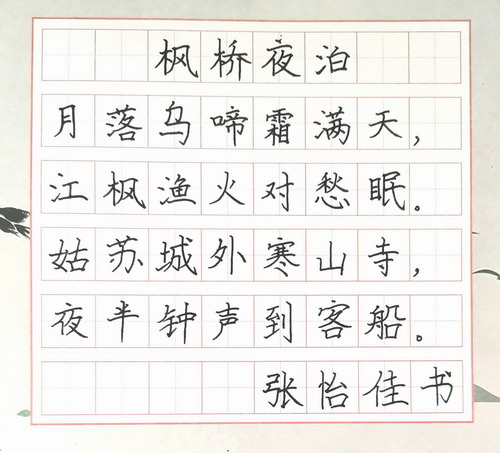 枫桥夜泊
月落乌啼霜满天，
江枫渔火对愁眠。
姑苏城外寒山寺，
夜半钟声到客船。
张怡佳书